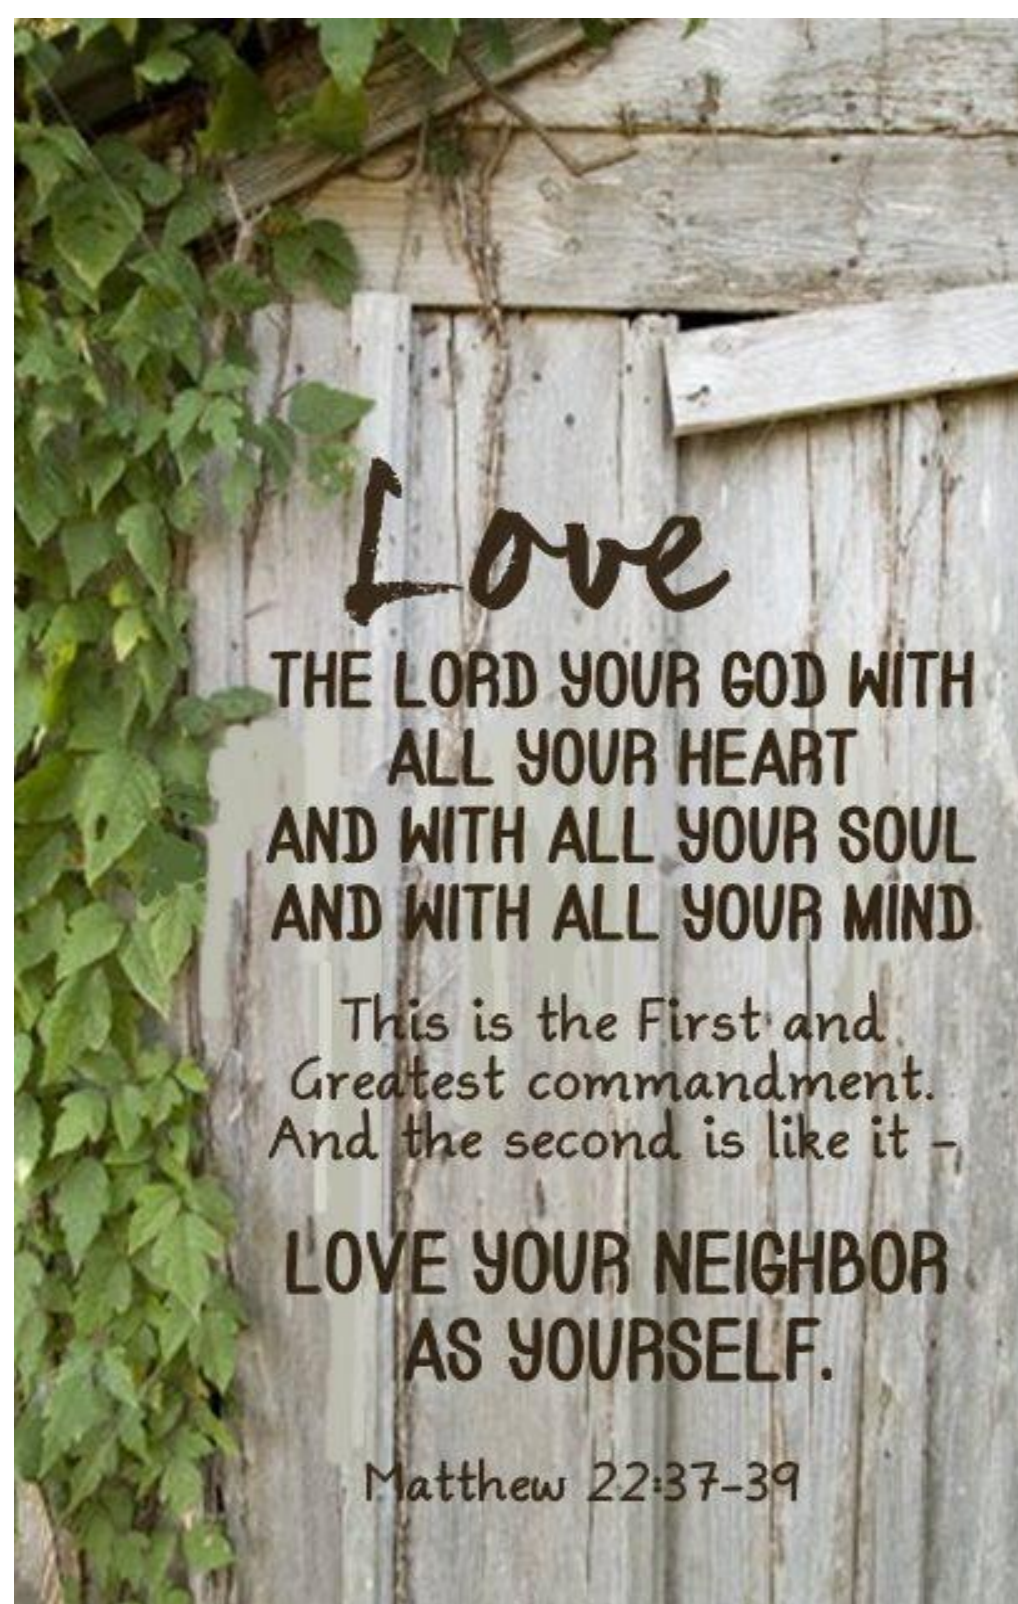 Love
THE LORD YOUR GOD WITH
ALL YOUR HEART
AND WITH ALL YOUR SOUL
AND WITH ALL YOUR MIND
This is the First and
Greatest commandment.
And the second is like it -
LOVE YOUR NEIGHBOR
AS YOURSELF.
Matthew 22:37-39